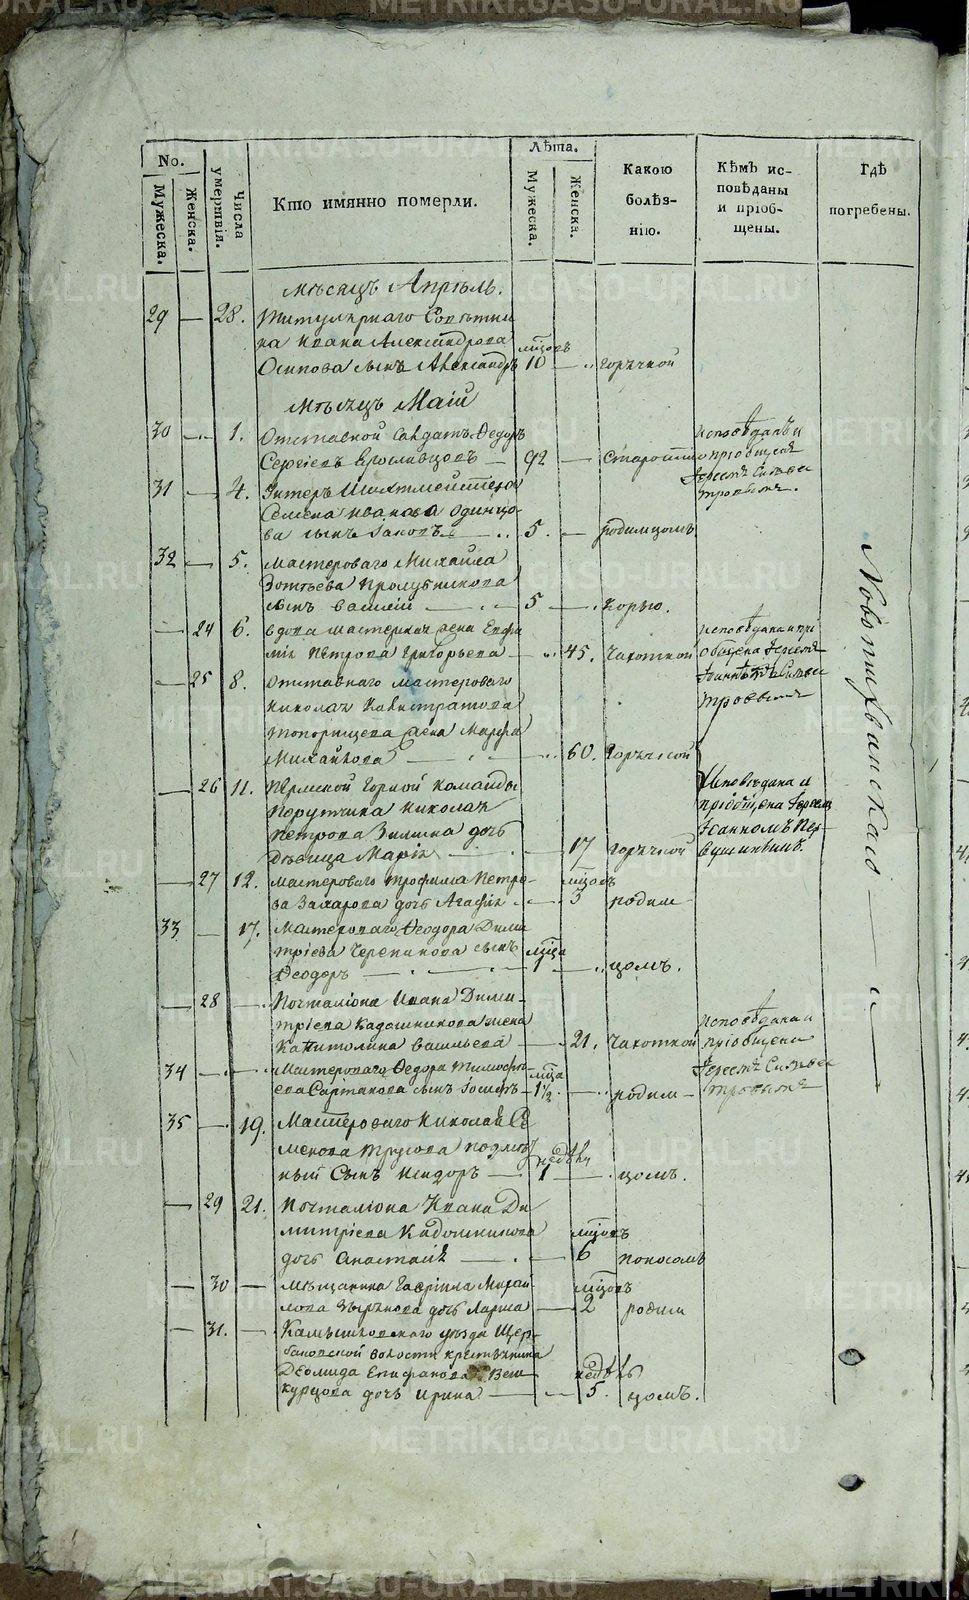 No.
Мужеска.
Женска.
Числа умертвія.
Кто имянно померли.
Лѣта.
Мужеска.
Женска.
Какою болѣз-
нію.
Кѣмъ ис-
повѣданы
и пріоб-
щены.
Гдѣ
погребены.
Мѣсяцъ Апрѣль.
29 — 28. Титулярнаго Совѣтни
ка Ивана Александрова
Осипова сынъ Александръ мцовъ 10 — горячкой
Мѣсяцъ Маій
30 — 1. Отставной Солдатъ Федоръ
Сергіевъ Ярославцовъ — 92 — старостію
исповѣданъ и
пріобщенъ
Іереемъ
31 — 4. Унтеръ Шихтмейстера
Семена Иванова Одинцо-
ва сынъ Іаковъ — 5. — родимцомъ
32 — 5. Мастероваго Михайла
Зотѣева Пролубникова
сынъ Василій — 5 — Корью.
— 24 6. вдова мастерская жена Евфи
мія Петрова Григорьева — 45. Чахоткой
исповѣдана и прі
общена Іереемъ
— 25 8. отставнаго мастероваго
Николая Каллистратова
Топорищева жена Марфа
Михайлова — 60. Горячкой
— 26 11. Пермской Горной команды
Порутчика Николая
Петрова Зимина дочь
Дѣвица Марія — 17 горячкой
Исповѣдана и
пріобщена Іереемъ
Іоанномъ Пер-
вушинымъ.
— 27 12. Мастероваго Трофима Петро-
ва Захарова дочь Агафія — мцовъ 3 родим-
33 — 17. Мастероваго Феодора Дими
тріева Черепанова сынъ
Феодоръ — мца 1 — цомъ.
— 28 — Почталіона Ивана Дими-
тріева Кадошникова жена
Капитолина Васильева — 21. Чахоткой
исповѣдана и
пріобщена
Іереемъ
34 — Мастероваго Федора Тимофѣ
ева сынъ Іосифъ — мца 1½. — родим-
35 — 19. Мастероваго Николая Се
менова Трусова
ный Сынъ Исидоръ — недѣли 1 — цомъ.
— 29 21. Почталіона Ивана Ди
митріева Кадошникова
дочь Анастасія — мцовъ 6 поносомъ
— 30 — Мѣщанина Гавріила Михай
лова Зырянова дочь Лариса — мцовъ 2 родим
— 31. — Камышловскаго уѣзда Щер-
баковской волости крестьянина
Діомида Епифанова
дочь Ирина — недѣль 5. цомъ.
Новотихвинскаго
METRIKI.GASO-URAL.RU